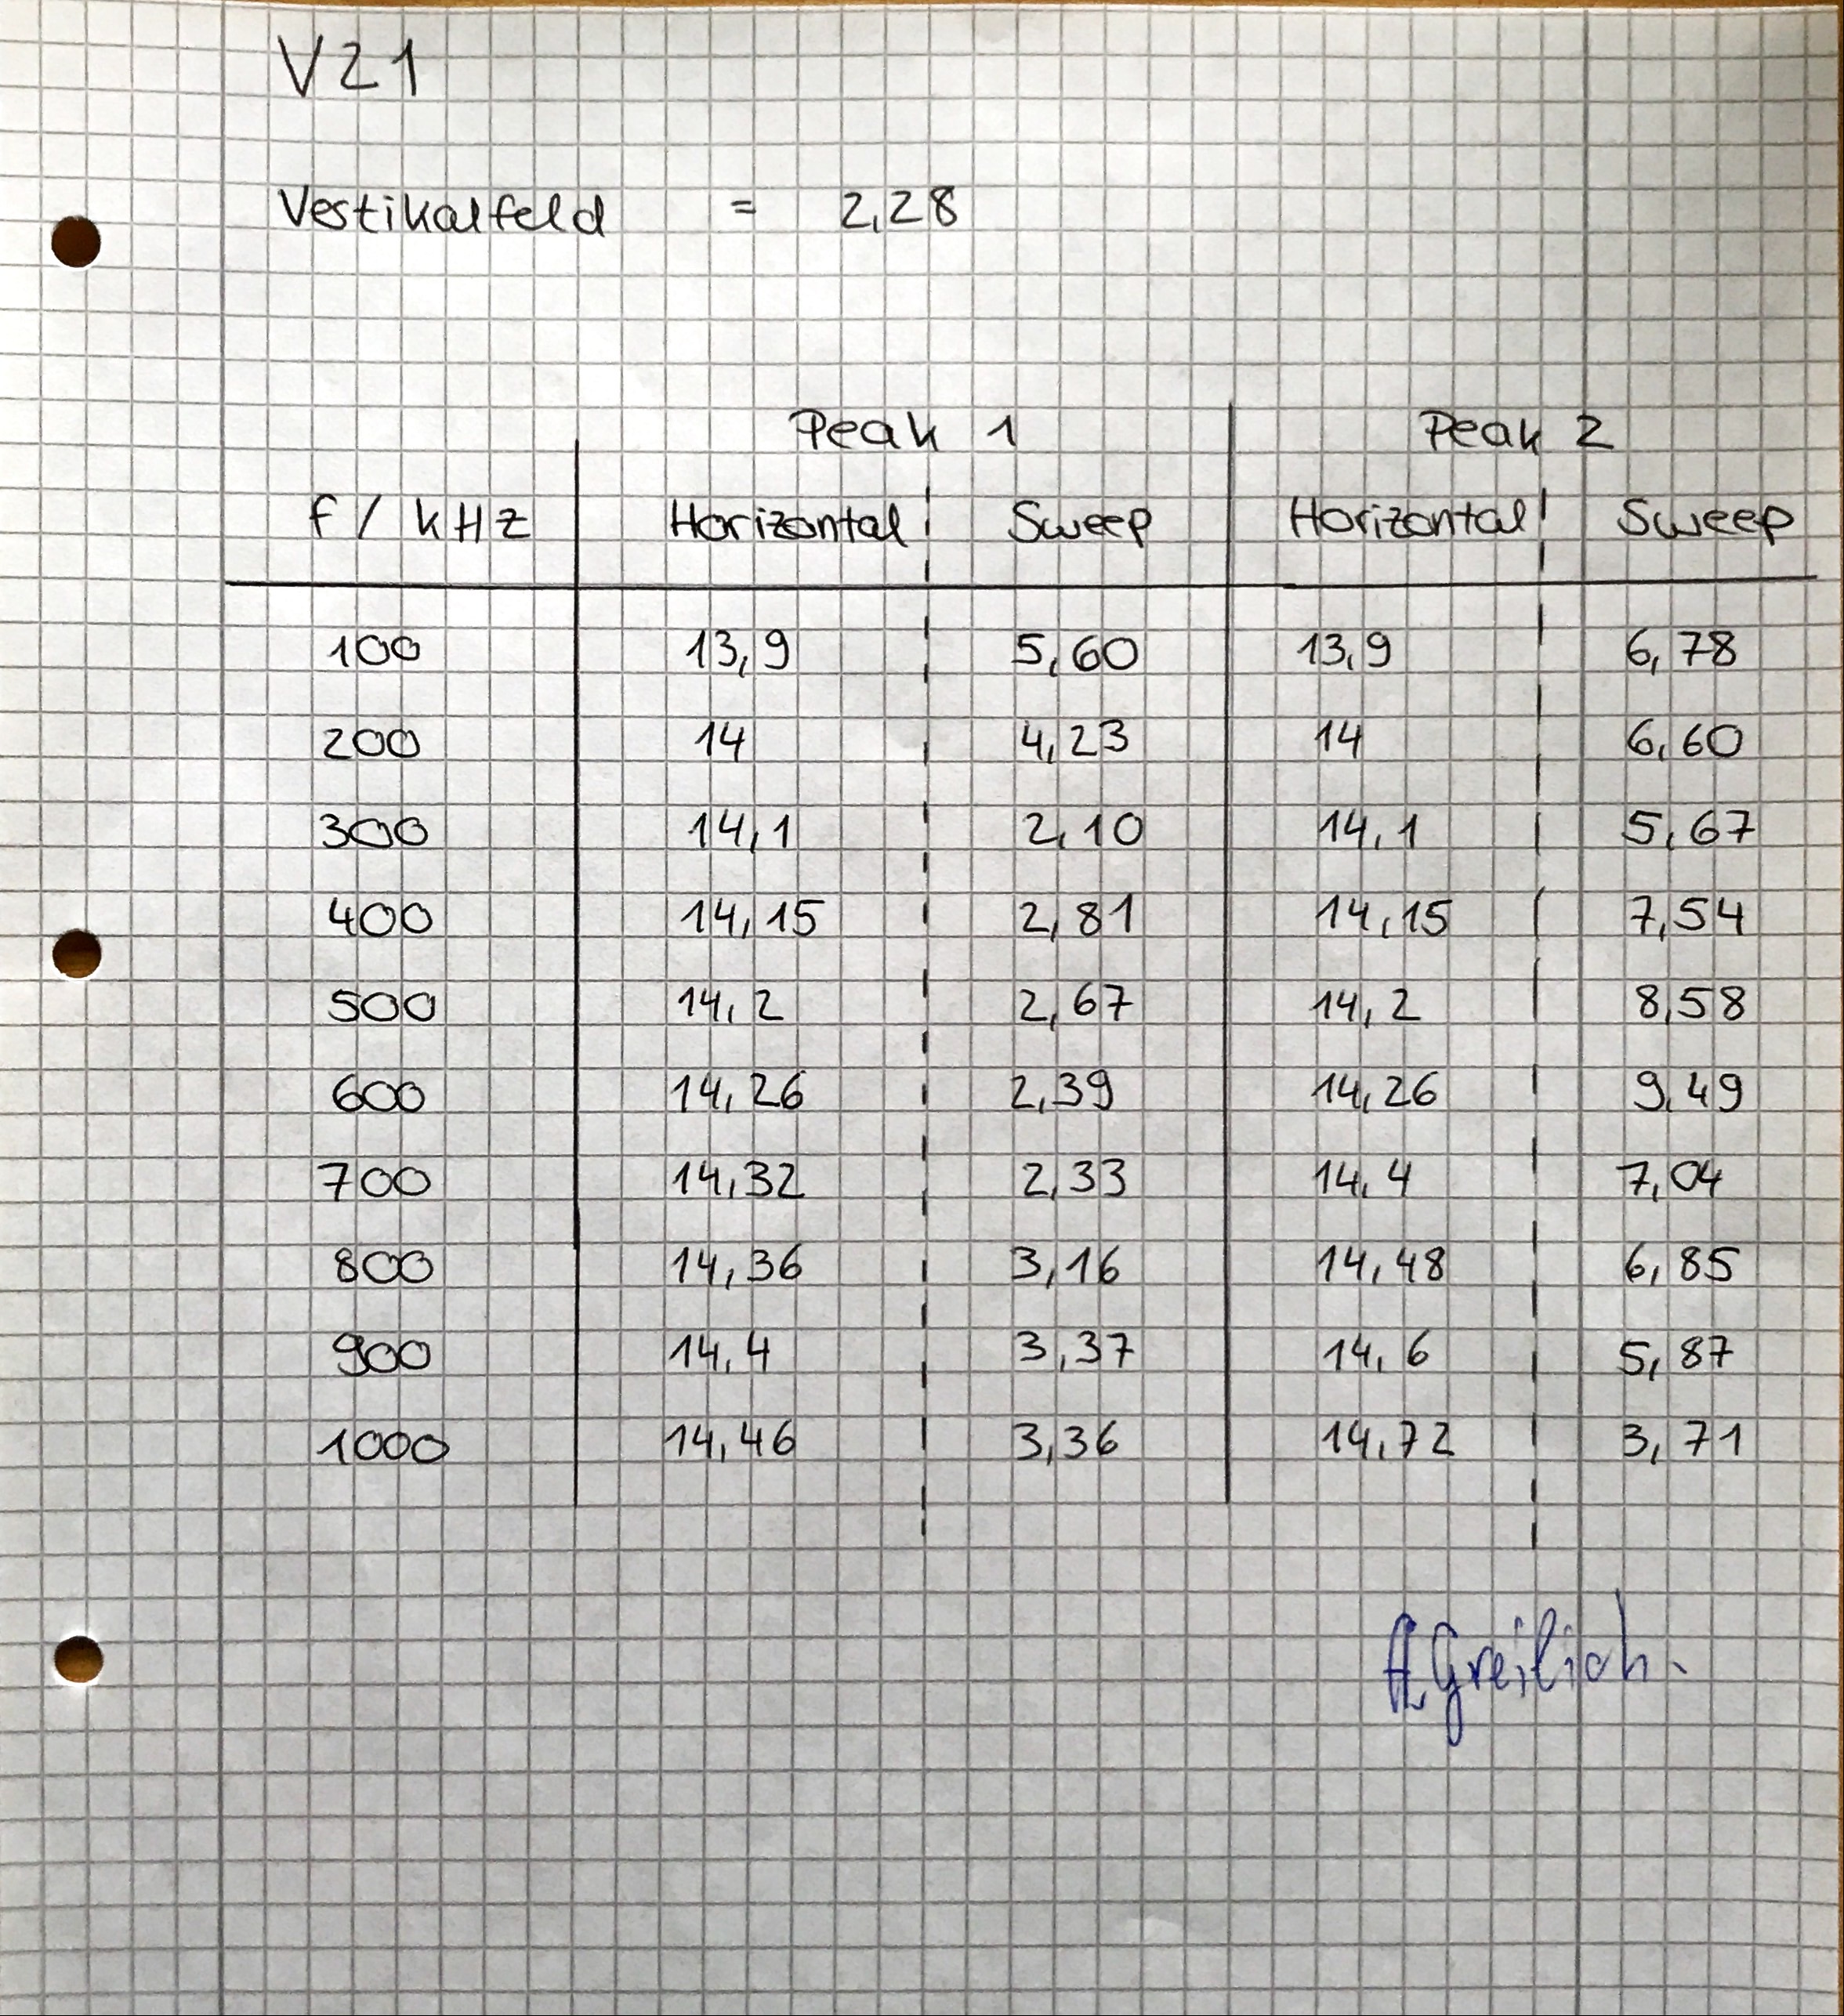 V21
Vertikalfeld = 2,28
Peak 1 Peak 2
f / kHz Horizontal Sweep Horizontal Sweep
100 13,9 5,60 13,9 6,78
200 14 4,23 14 6,60
300 14,1 2,10 14,1 5,67
400 14,15 2,81 14,15 7,54
500 14,2 2,67 14,2 8,58
600 14,26 2,39 14,26 9,49
700 14,32 2,33 14,4 7,04
800 14,36 3,16 14,48 6,85
900 14,4 3,37 14,6 5,87
1000 14,46 3,36 14,72 3,71
A. Greilich.